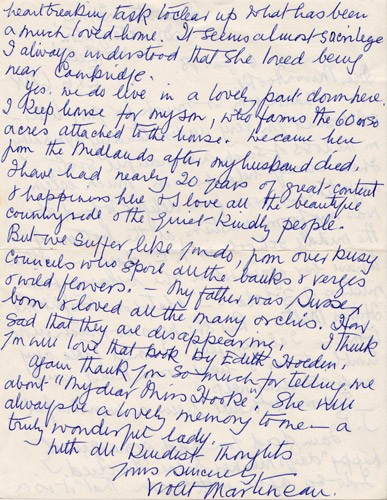 heartbreaking task to clear up what has been
a much loved home. It seems almost sacrilege
I always understood that she loved being
near Cambridge.
Yes. we do live in a lovely part down here.
I keep house for my son, who farms the 60 or so
acres attached to the house. We came here
from the Midlands after my husband died.
I have had nearly 20 years of great content
& happiness here & I love all the beautiful
countryside & the quiet kindly people.
But we suffer like you do, from over busy
Councils who spoil all the banks & verges
& wild flowers. – My father was Sussex
born & loved all the many orchis. How
sad that they are disappearing. I think
you will love that book by Edith Holden.
Again thank you so much for telling me
about "My dear Miss Hooke". She will
always be a lovely memory to me – a
truly wonderful lady.
With all kindest thoughts
Yours sincerely
Violet Martineau.